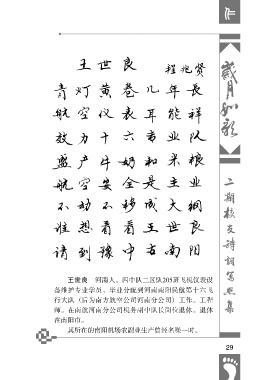 王世良
程兆贤
青灯黄卷几年长
航空仪表耳能祥
效力十六书业队
盛产牛奶和米粮
航空安全是主业
不动不移成大纲
谁想看看王世良
请到豫中古南阳
王世良 河南人。四中队二区队205班飞机仪表设
备维护专业学员。毕业分配到河南南阳民航第十六飞
行大队（后为南方航空公司河南分公司）工作。工程
师。在南航河南分公司机务部中队长岗位退休。退休
在南阳市。
其所在的南阳机场农副业生产曾经名噪一时。
岁月如歌
二期校友诗词写照集
29